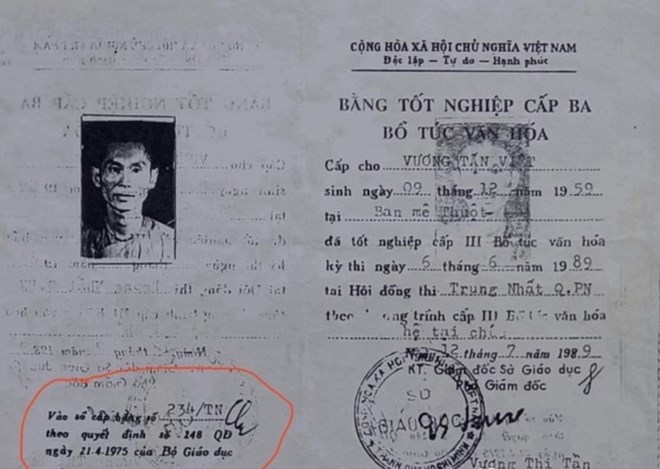 CỘNG HÒA XÃ HỘI CHỦ NGHĨA VIỆT NAM
Độc lập — Tự do — Hạnh phúc
BẰNG TỐT NGHIỆP CẤP BA
BỔ TÚC VĂN HÓA
Cấp cho VƯƠNG TẤN VIỆT
sinh ngày 09 tháng 12 năm 1959
tại Ban mê Thuột
đã tốt nghiệp cấp III Bổ túc văn hóa
kỳ thi ngày 6 tháng 6 năm 1989
tại Hội đồng thi Trung Nhất Q.PN
theo chương trình cấp III Bổ túc văn hóa
hệ tại
12 tháng 7 năm 1989
KT. Giám đốc Sở Giáo dục
Giám đốc
GIÁO DỤC
Vương Thị Tần
Vào sổ cấp bằng số 234/TN
theo quyết định số 248 QĐ
ngày 21.4.1975 của Bộ Giáo dục